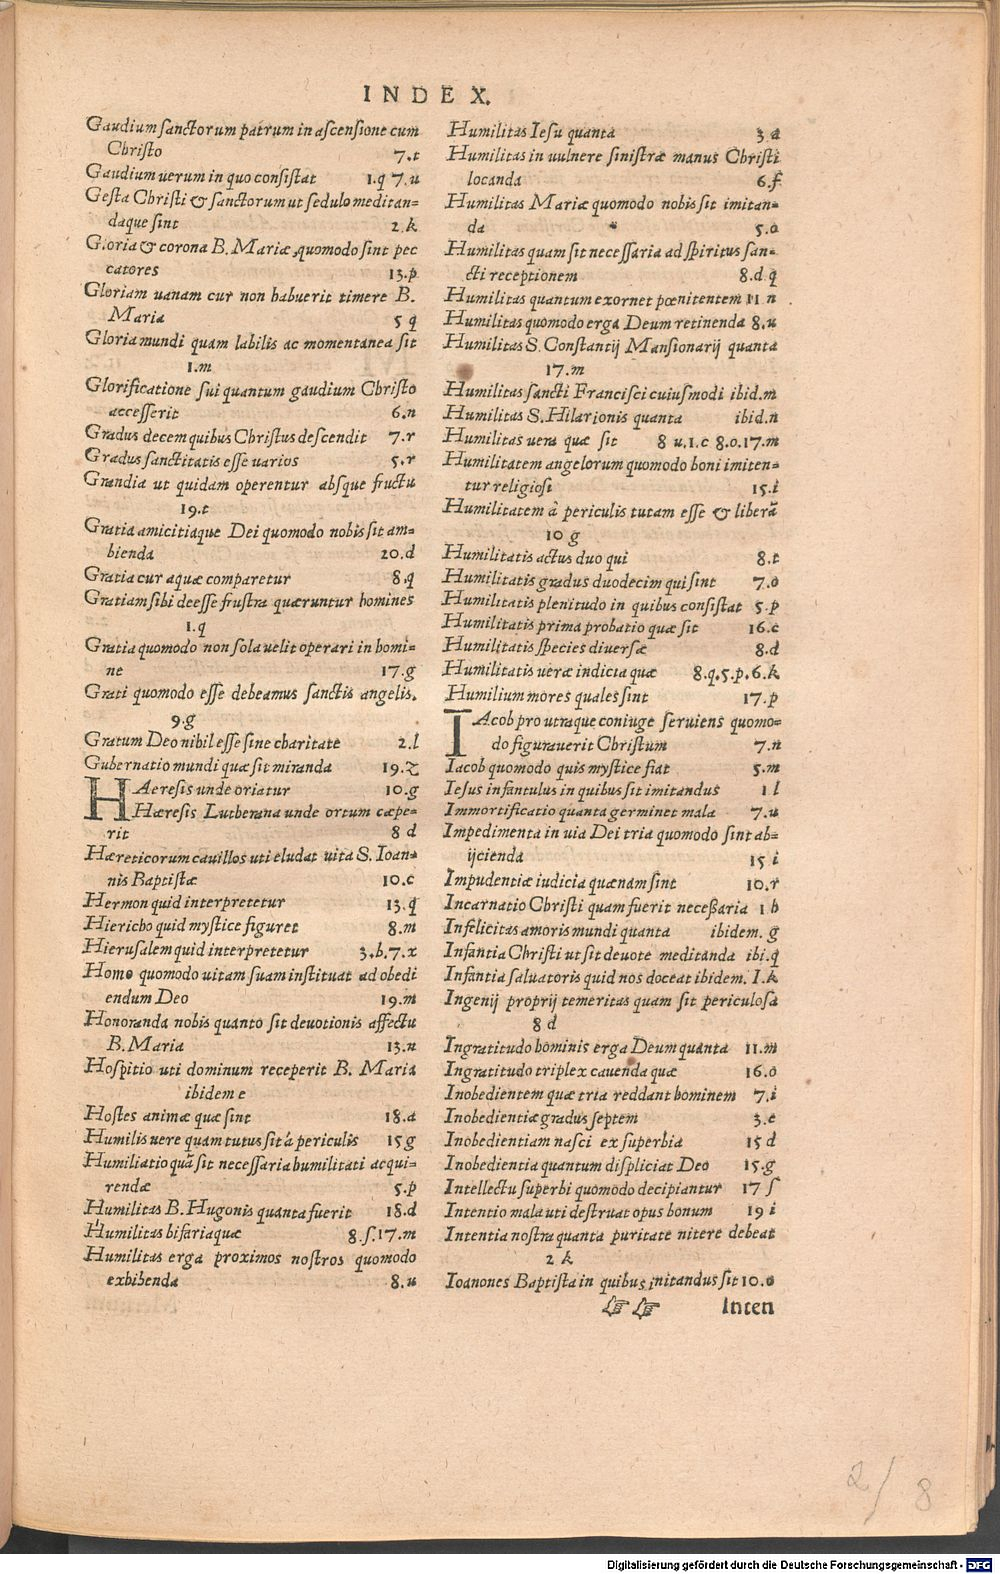 INDEX.
Gaudium sanctorum patrum in ascensione cum
Christo 7.t
Gaudium uerum in quo consistat 1.q 7.u
Gesta Christi & sanctorum ut sedulo meditan=
daque sint 2.k
Gloria & corona B. Mariæ, quomodo sint pec
catores 13.p
Gloriam uanam cur non habuerit timere B.
Maria 5 q
Gloria mundi quam labilis ac momentanea sit
1.m
Glorificatione sui quantum gaudium Christo
accesserit 6.n
Gradus decem quibus Christus descendit 7.r
Gradus sanctitatis esse uarios 5.r
Grandia ut quidam operentur absque fructu
19.t
Gratia amicitiaque Dei quomodo nobis sit am=
bienda 20.d
Gratia cur aquæ comparetur 8.q
Gratiam sibi deesse frustra quæruntur homines
1.q
Gratia quomodo non sola uelit operari in homi=
ne 17.g
Grati quomodo esse debeamus sanctis angelis.
9.g
Gratum Deo nihil esse sine charitate 2.l
Gubernatio mundi quæ sit miranda 19.z
HAeresis unde oriatur 10.g
Hæresis Lutherana unde ortum cæpe=
rit 8 d
Hæreticorum cauillos uti eludat uita S. Ioan=
nis Baptistæ 10.c
Hermon quid interpretetur 13.q
Hiericho quid mystice figuret 8.m
Hierusalem quid interpretetur 3.b.7.x
Homo quomodo uitam suam instituat ad obedi
endum Deo 19.m
Honoranda nobis quanto sit deuotionis affectu
B. Maria 13.n
Hospitio uti dominum receperit B. Maria
ibidem e
Hostes animæ quæ sint 18.a
Humilis uere quam tutus sit à periculis 15 g
Humiliatio quã sit necessaria humilitati acqui=
rendæ 5.p
Humilitas B. Hugonis quanta fuerit 18.d
Humilitas bifaria quæ 8.s.17.m
Humilitas erga proximos nostros quomodo
exhibenda 8.u
Humilitas Iesu quanta 3.a
Humilitas in uulnere sinistræ manus Christi
locanda 6.f
Humilitas Mariæ quomodo nobis sit imitan=
da 5.o
Humilitas quam sit necessaria ad spiritus san=
cti receptionem 8.d.q
Humilitas quantum exornet pœnitentem 11.n
Humilitas quomodo erga Deum retinenda 8.u
Humilitas S. Constantij Mansionarij quanta
17.m
Humilitas sancti Francisci cuiusmodi ibid.m
Humilitas S. Hilarionis quanta ibid.n
Humilitas uera quæ sit 8 u.1.c 8.o.17.m
Humilitatem angelorum quomodo boni imiten=
tur religiosi 15.i
Humilitatem à periculis tutam esse & liberã
10 g
Humilitatis actus duo qui 8.t
Humilitatis gradus duodecim qui sint 7.o
Humilitatis plenitudo in quibus consistat 5.p
Humilitatis prima probatio quæ sit 16.c
Humilitatis species diuersæ 8.d
Humilitatis ueræ indicia quæ 8.q.5.p.6.k
Humilium mores quales sint 17.p
IAcob pro utraque coniuge seruiens quomo=
do figurauerit Christum 7.n
Iacob quomodo quis mystice fiat 5.m
Iesus infantulus in quibus sit imitandus 1 l
Immortificatio quanta germinet mala 7.u
Impedimenta in uia Dei tria quomodo sint ab=
ijcienda 15 i
Impudentiæ iudicia quænam sint 10.r
Incarnatio Christi quam fuerit necessaria 1 b
Infelicitas amoris mundi quanta ibidem. g
Infantia Christi ut sit deuote meditanda ibi.q
Infantia saluatoris quid nos doceat ibidem. I.k
Ingenij proprij temeritas quam sit periculosa
8 d
Ingratitudo hominis erga Deum quanta 11.m
Ingratitudo triplex cauenda quæ 16.o
Inobedientem quæ tria reddant hominem 7.i
Inobedientiæ gradus septem 3.e
Inobedientiam nasci ex superbia 15 d
Inobedientia quantum displiciat Deo 15.g
Intellectu superbi quomodo decipiantur 17 s
Intentio mala uti destruat opus bonum 19 i
Intentia nostra quanta puritate nitere debeat
2 k
Ioanones Baptista in quibus imitandus sit 10.o
☞ ☞ Inten
2/8
Digitalisierung gefördert durch die Deutsche Forschungsgemeinschaft - DFG